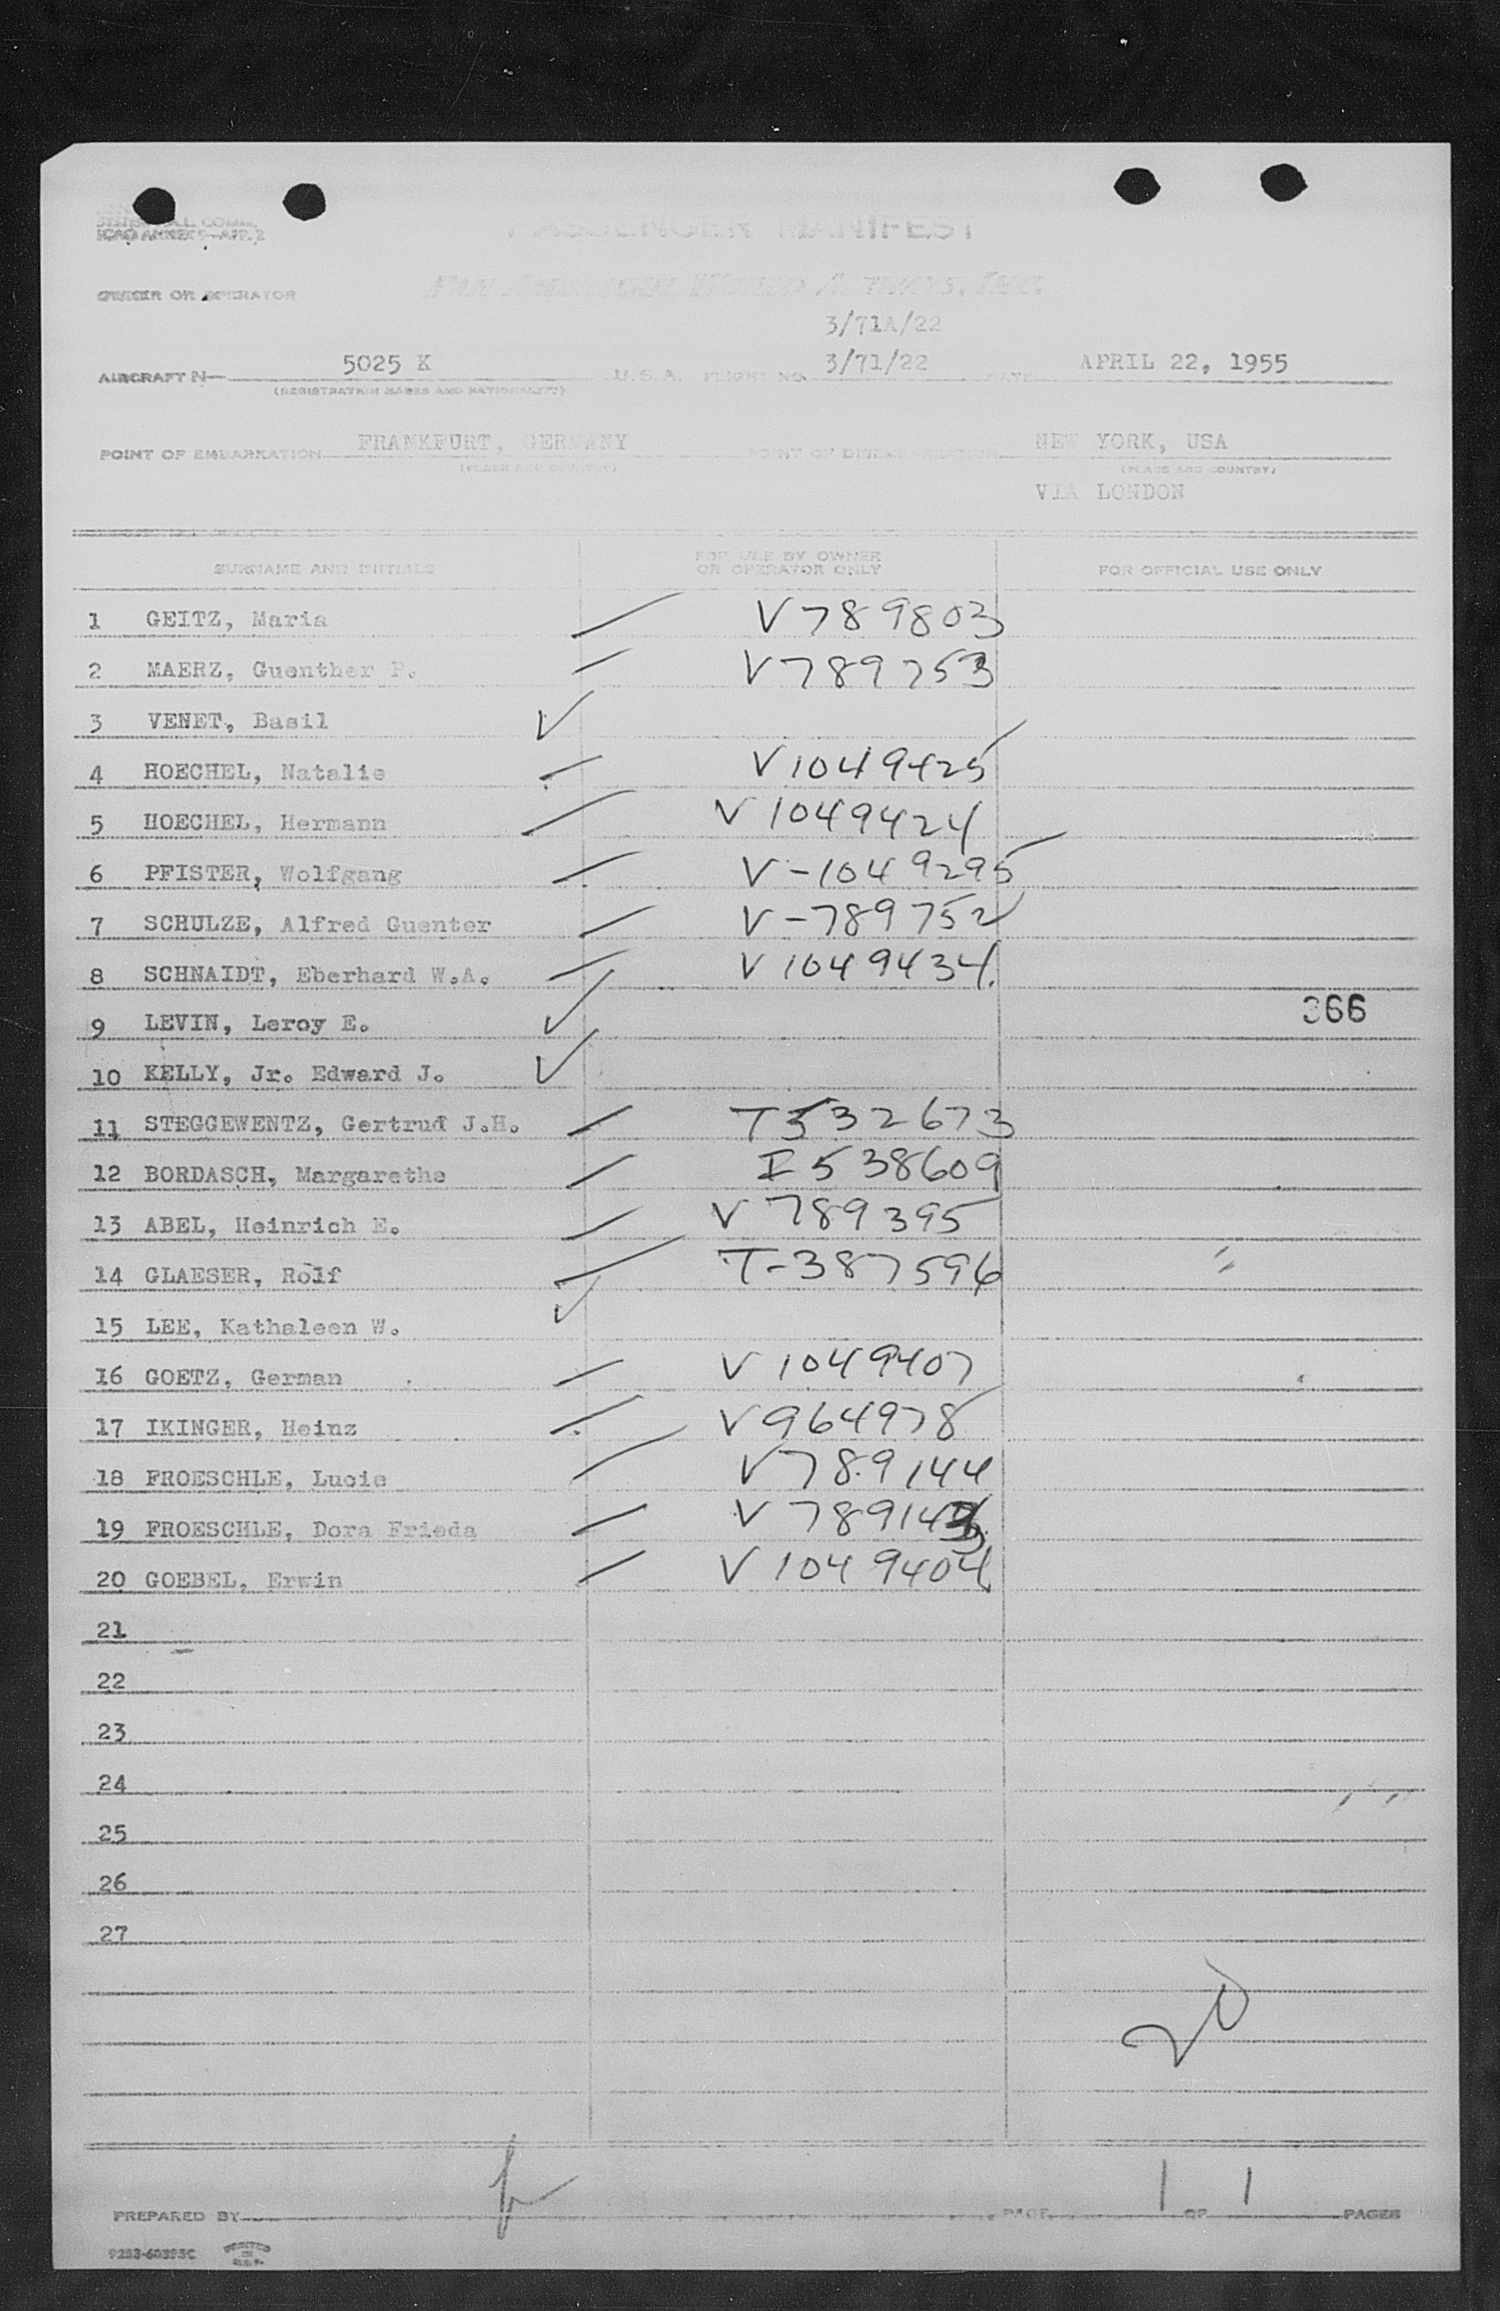 PASSENGER MANIFEST
ICAO ANNEX 9—APP. 2
OWNER OR OPERATOR PAN AMERICAN WORLD AIRWAYS, INC.
3/71A/22
AIRCRAFT N— 5025 K U.S.A. FLIGHT NO. 3/71/22 DATE APRIL 22, 1955
(REGISTRATION MARKS AND NATIONALITY)
POINT OF EMBARKATION FRANKFURT, GERMANY POINT OF DISEMBARKATION NEW YORK, USA
(PLACE AND COUNTRY) (PLACE AND COUNTRY)
VIA LONDON
SURNAME AND INITIALS FOR USE BY OWNER OR OPERATOR ONLY FOR OFFICIAL USE ONLY
1 GEITZ, Maria V789803
2 MAERZ, Guenther P. V789753
3 VENET, Basil
4 HOECHEL, Natalie V1049425
5 HOECHEL, Hermann V1049424
6 PFISTER, Wolfgang V-1049295
7 SCHULZE, Alfred Guenter V-789752
8 SCHNAIDT, Eberhard W.A. V1049434.
9 LEVIN, Leroy E. 366
10 KELLY, Jr. Edward J.
11 STEGGEWENTZ, Gertrud J.H. T532673
12 BORDASCH, Margarethe I538609
13 ABEL, Heinrich E. V789395
14 GLAESER, Rolf T-387596
15 LEE, Kathaleen W.
16 GOETZ, German V1049407
17 IKINGER, Heinz V964978
18 FROESCHLE, Lucie V789144
19 FROESCHLE, Dora Frieda V789143
20 GOEBEL, Erwin V1049404
21
22
23
24
25
26
27
20
PREPARED BY PAGE 1 OF 1 PAGES
9283-60395C PRINTED IN U.S.A.